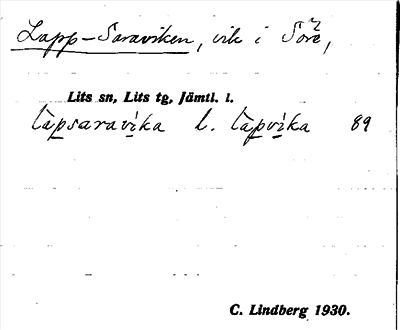 Lapp-Saraviken, vik i Sore,
Lits sn, Lits tg, Jämtl. l.
làpsaravika l. làpvika 89
C. Lindberg 1930.